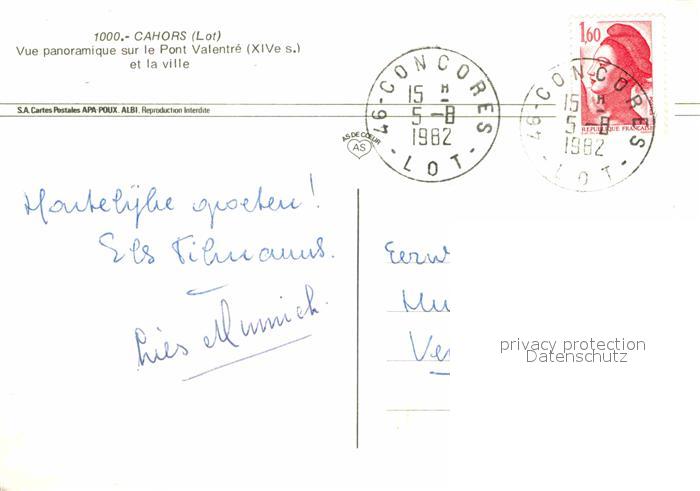 1000.- CAHORS (Lot)
Vue panoramique sur le Pont Valentré (XIVe s.)
et la ville
S.A. Cartes Postales APA-POUX. ALBI. Reproduction Interdite
AS DE COEUR
AS
46-CONCORES
15 H
5-8
1982
-LOT-
1,60
REPUBLIQUE FRANCAISE
46-CONCORES
15 H
5-8
1982
-LOT-
Hartelijke groeten!
Els Tilmanns.
Eerw
privacy protection
Datenschutz